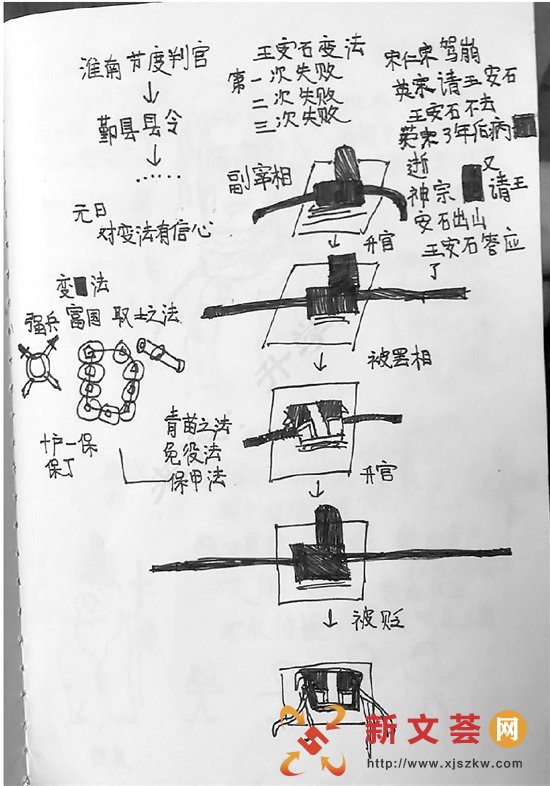 淮南节度判官
鄞县县令
……
王安石变法
第一次失败
二次失败
三次失败
宋仁宗驾崩
英宗请王安石
王安石不去
英宗3年后病
逝
神宗 又请王
安石出山
王安石答应
了
元日
对变法有信心
副宰相
升官
变 法
强兵 富国 取士之法
被罢相
十户一保
保丁
青苗之法
免役法
保甲法
升官
被贬
新文荟网
http://www.xjszkw.com